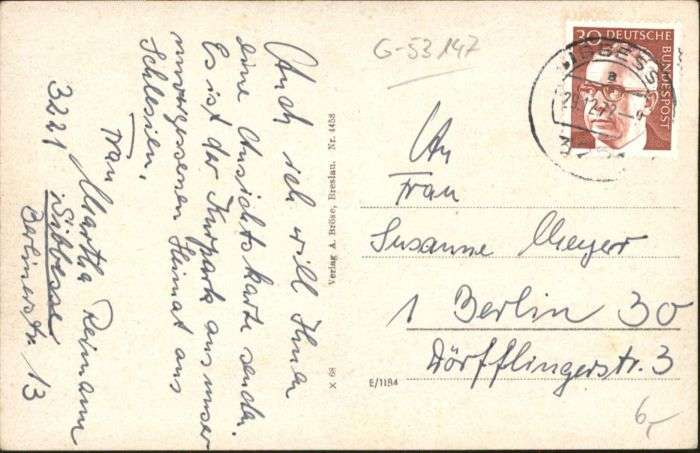 Auch ich will Ihnen
eine Ansichtskarte senden.
Es ist der Kurpark aus unser
unvergessenen Heimat aus
Schlesien.
Frau Martha Reimann
3221 Sibbesse
Berlinerstr. 13
Verlag A. Bröse, Breslau. Nr. 4458
X 68
G-53147
30 DEUTSCHE
BUNDESPOST
SIBBESSE
a
29.12.72
An
Frau
Susanne Meyer
1 Berlin 30
Dörfflingerstr. 3
E/1184
6,-